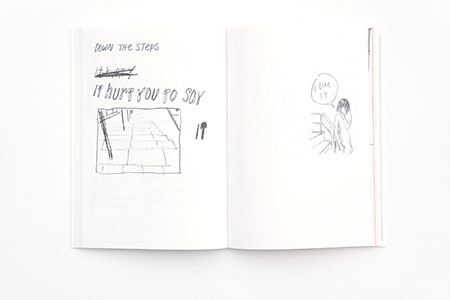 DOWN THE STEPS
IT hurt you to say
IT
I LIKE
IT